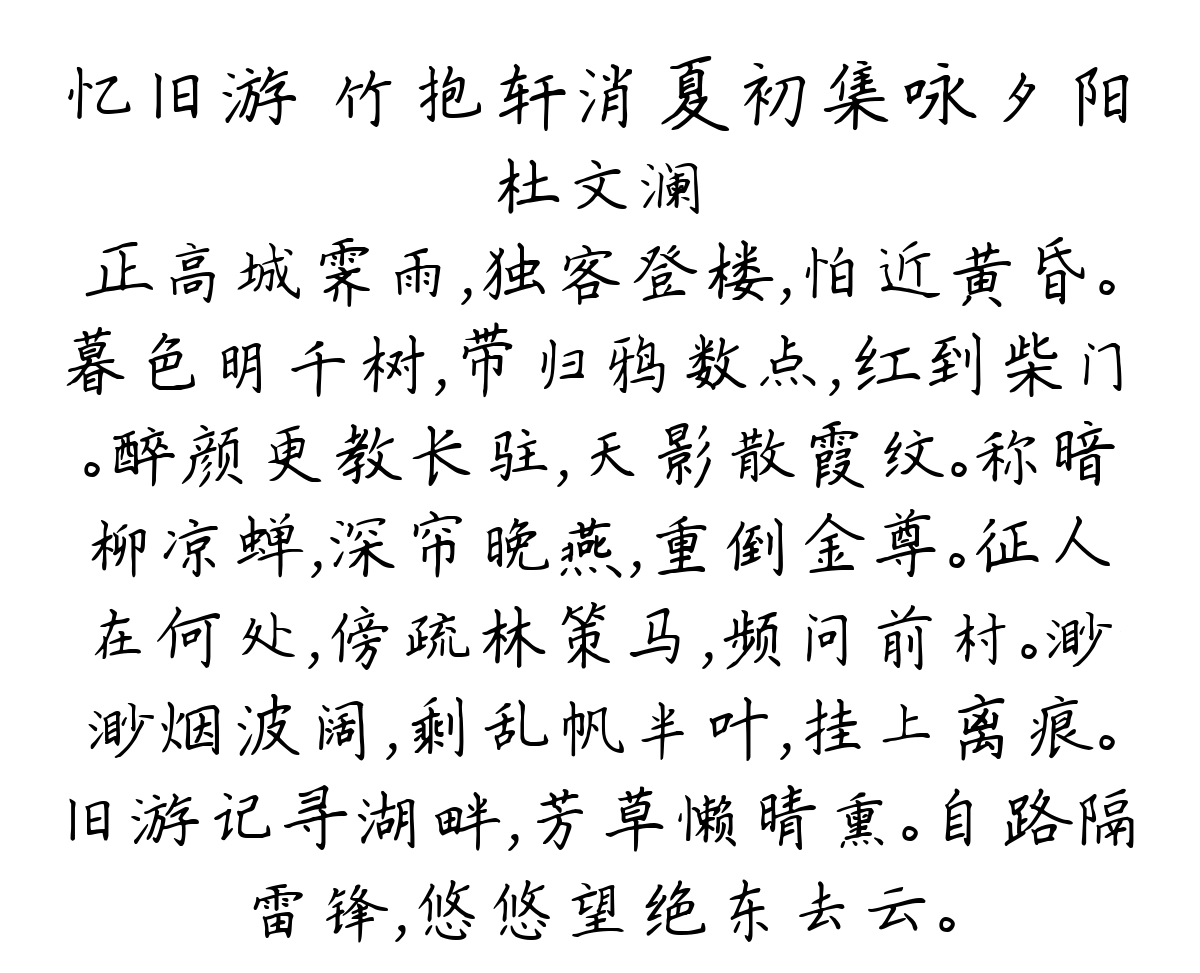 忆旧游 竹抱轩消夏初集咏夕阳
杜文澜
正高城霁雨,独客登楼,怕近黄昏。
暮色明千树,带归鸦数点,红到柴门
。醉颜更教长驻,天影散霞纹。称暗
柳凉蝉,深帘晚燕,重倒金尊。征人
在何处,傍疏林策马,频问前村。渺
渺烟波阔,剩乱帆半叶,挂上离痕。
旧游记寻湖畔,芳草懒晴熏。自路隔
雷锋,悠悠望绝东去云。